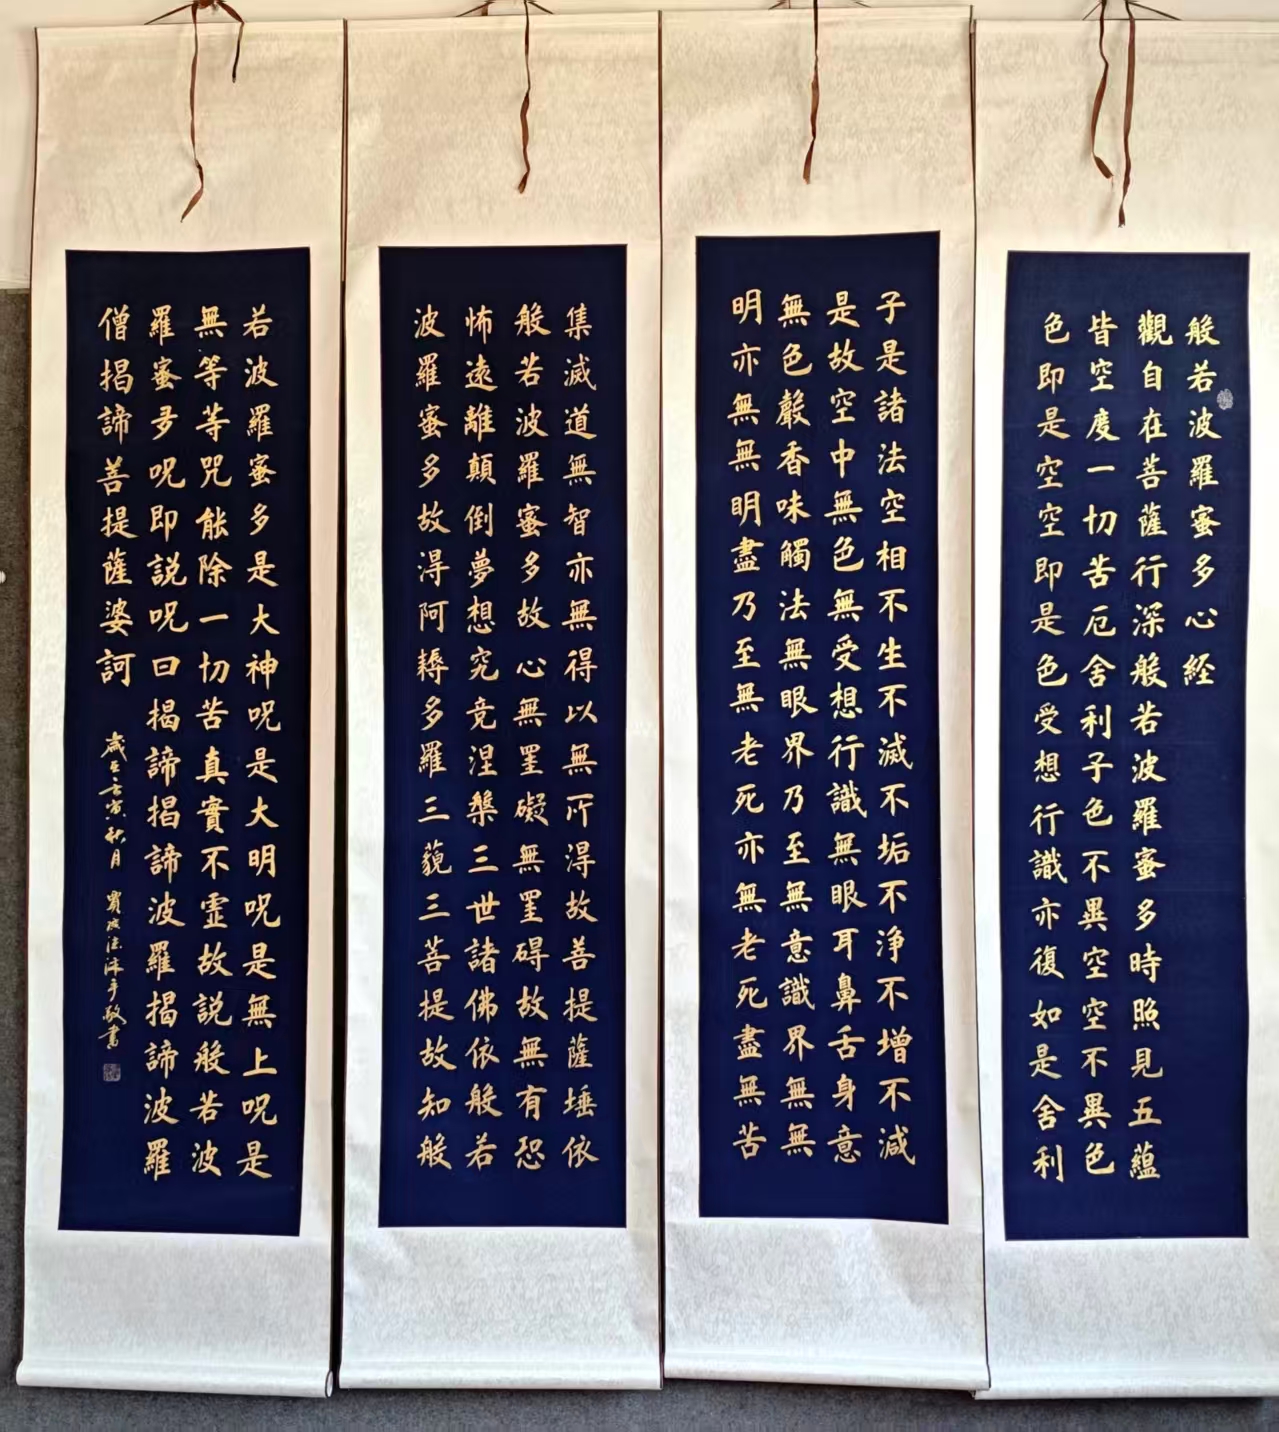 般若波羅蜜多心経
觀自在菩薩行深般若波羅蜜多時照見五蘊
皆空度一切苦厄舍利子色不異空空不異色
色即是空空即是色受想行識亦復如是舍利
子是諸法空相不生不滅不垢不淨不增不減
是故空中無色無受想行識無眼耳鼻舌身意
無色聲香味觸法無眼界乃至無意識界無無
明亦無無明盡乃至無老死亦無老死盡無苦
集滅道無智亦無得以無所得故菩提薩埵依
般若波羅蜜多故心無罣礙無罣碍故無有恐
怖遠離顛倒夢想究竟涅槃三世諸佛依般若
波羅蜜多故得阿耨多羅三藐三菩提故知般
若波羅蜜多是大神呪是大明呪是無上呪是
無等等咒能除一切苦真實不虛故説般若波
羅蜜多呪即説呪曰揭諦揭諦波羅揭諦波羅
僧揭諦菩提薩婆訶
歲至壬寅秋月
敬書